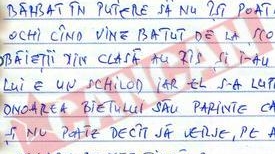 BĂRBAT ÎN PUTERE SĂ NU ÎȘI POAT
OCHI CÎND VINE BĂTUT DE LA ȘCO
BĂIEȚII DIN CLASĂ AU RÎS ȘI I-AU
LUI E UN SCHILOD IAR EL S-A LUT
ONOAREA BIETULUI SĂU PĂRINTE CA
ȘI NU POATE DECÎT SĂ VERSE, PE A